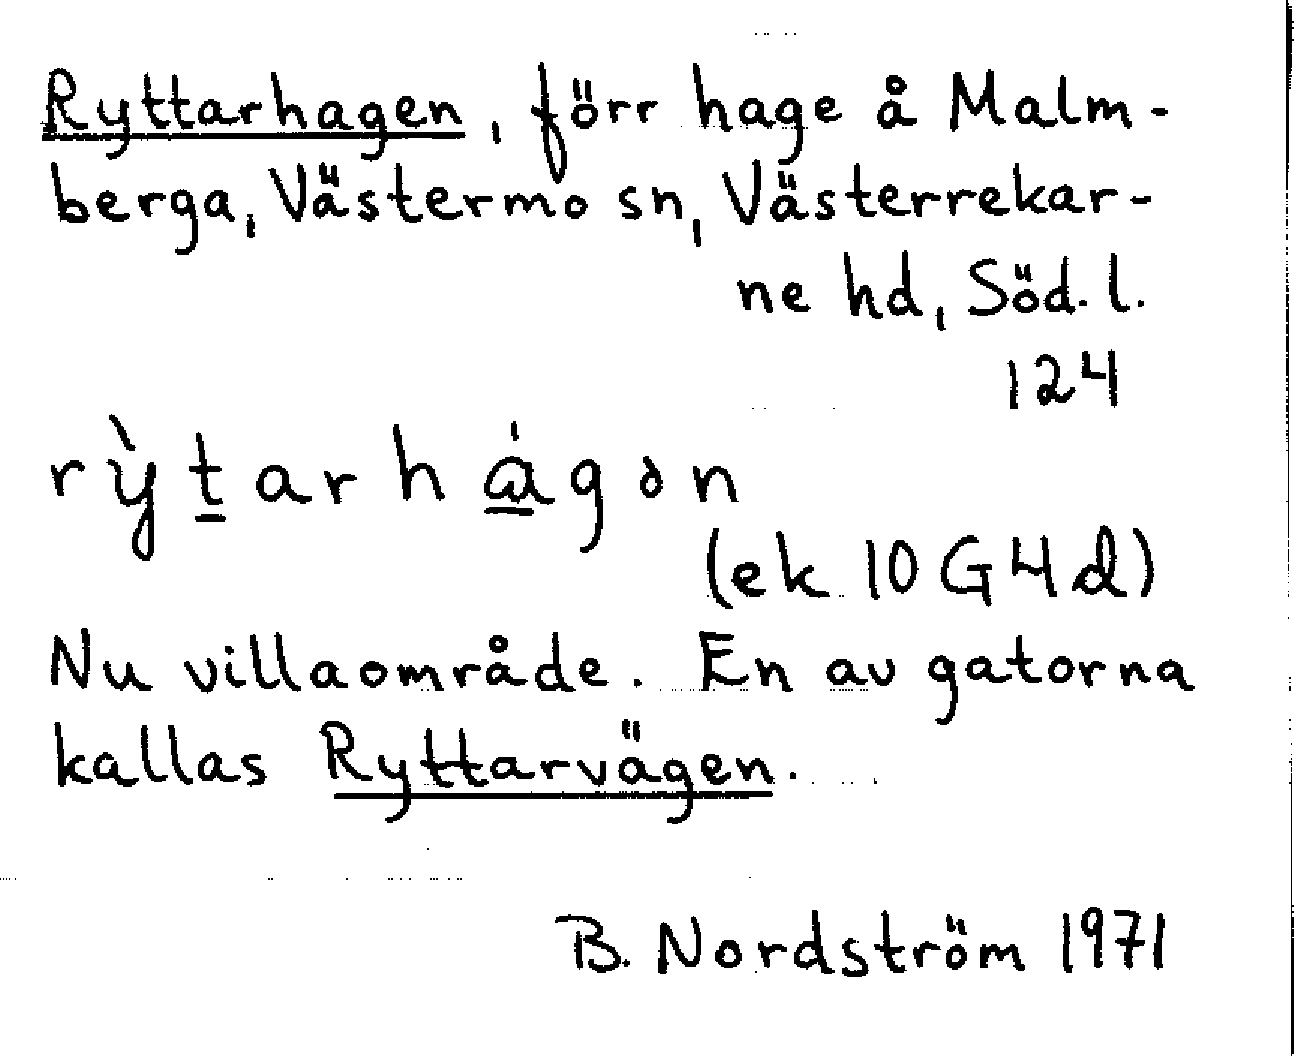 Ryttarhagen, förr hage å Malm-
berga, Västermo sn, Västerrekar-
ne hd, Söd. l.
124
rỳṯarhá̱gən
(ek 10 G 4 d)
Nu villaområde. En av gatorna
kallas Ryttarvägen.
B. Nordström 1971